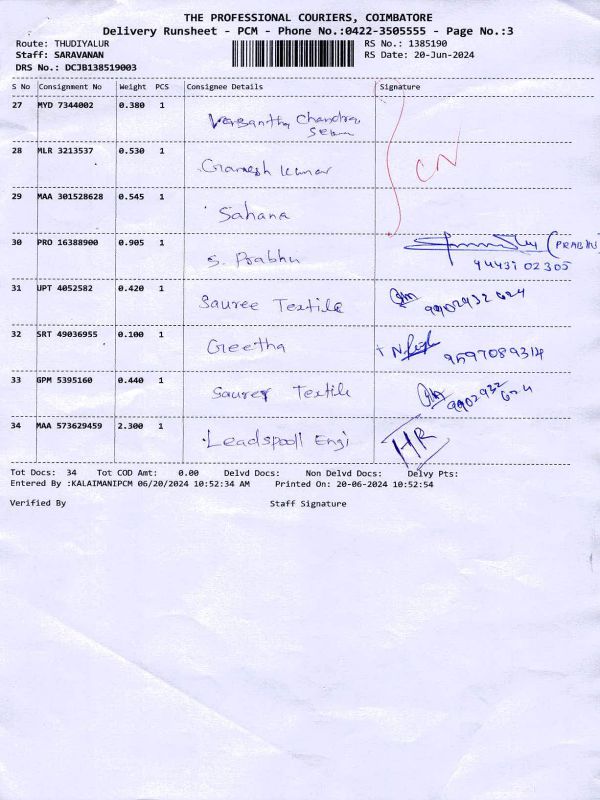 THE PROFESSIONAL COURIERS, COIMBATORE
Delivery Runsheet - PCM - Phone No.:0422-3505555 - Page No.:3
Route: THUDIYALUR RS No.: 1385190
Staff: SARAVANAN RS Date: 20-Jun-2024
DRS No.: DCJB138519003
S No Consignment No Weight PCS Consignee Details Signature
27 MYD 7344002 0.380 1 Vasantha Chandra
28 MLR 3213537 0.530 1 Ganesh Kumar CN
29 MAA 301528628 0.545 1 Sahana
30 PRO 16388900 0.905 1 S. Prabhu (PRABHU
94431 02305
31 UPT 4052582 0.420 1 Sauree Textile 9902932624
32 SRT 49036955 0.100 1 Geetha 9597089314
33 GPM 5395160 0.440 1 Sauree Textile 9902932624
34 MAA 573629459 2.300 1 Leadspooll Engi HR
Tot Docs: 34 Tot COD Amt: 0.00 Delvd Docs: Non Delvd Docs: Delvy Pts:
Entered By :KALAIMANIPCM 06/20/2024 10:52:34 AM Printed On: 20-06-2024 10:52:54
Verified By Staff Signature